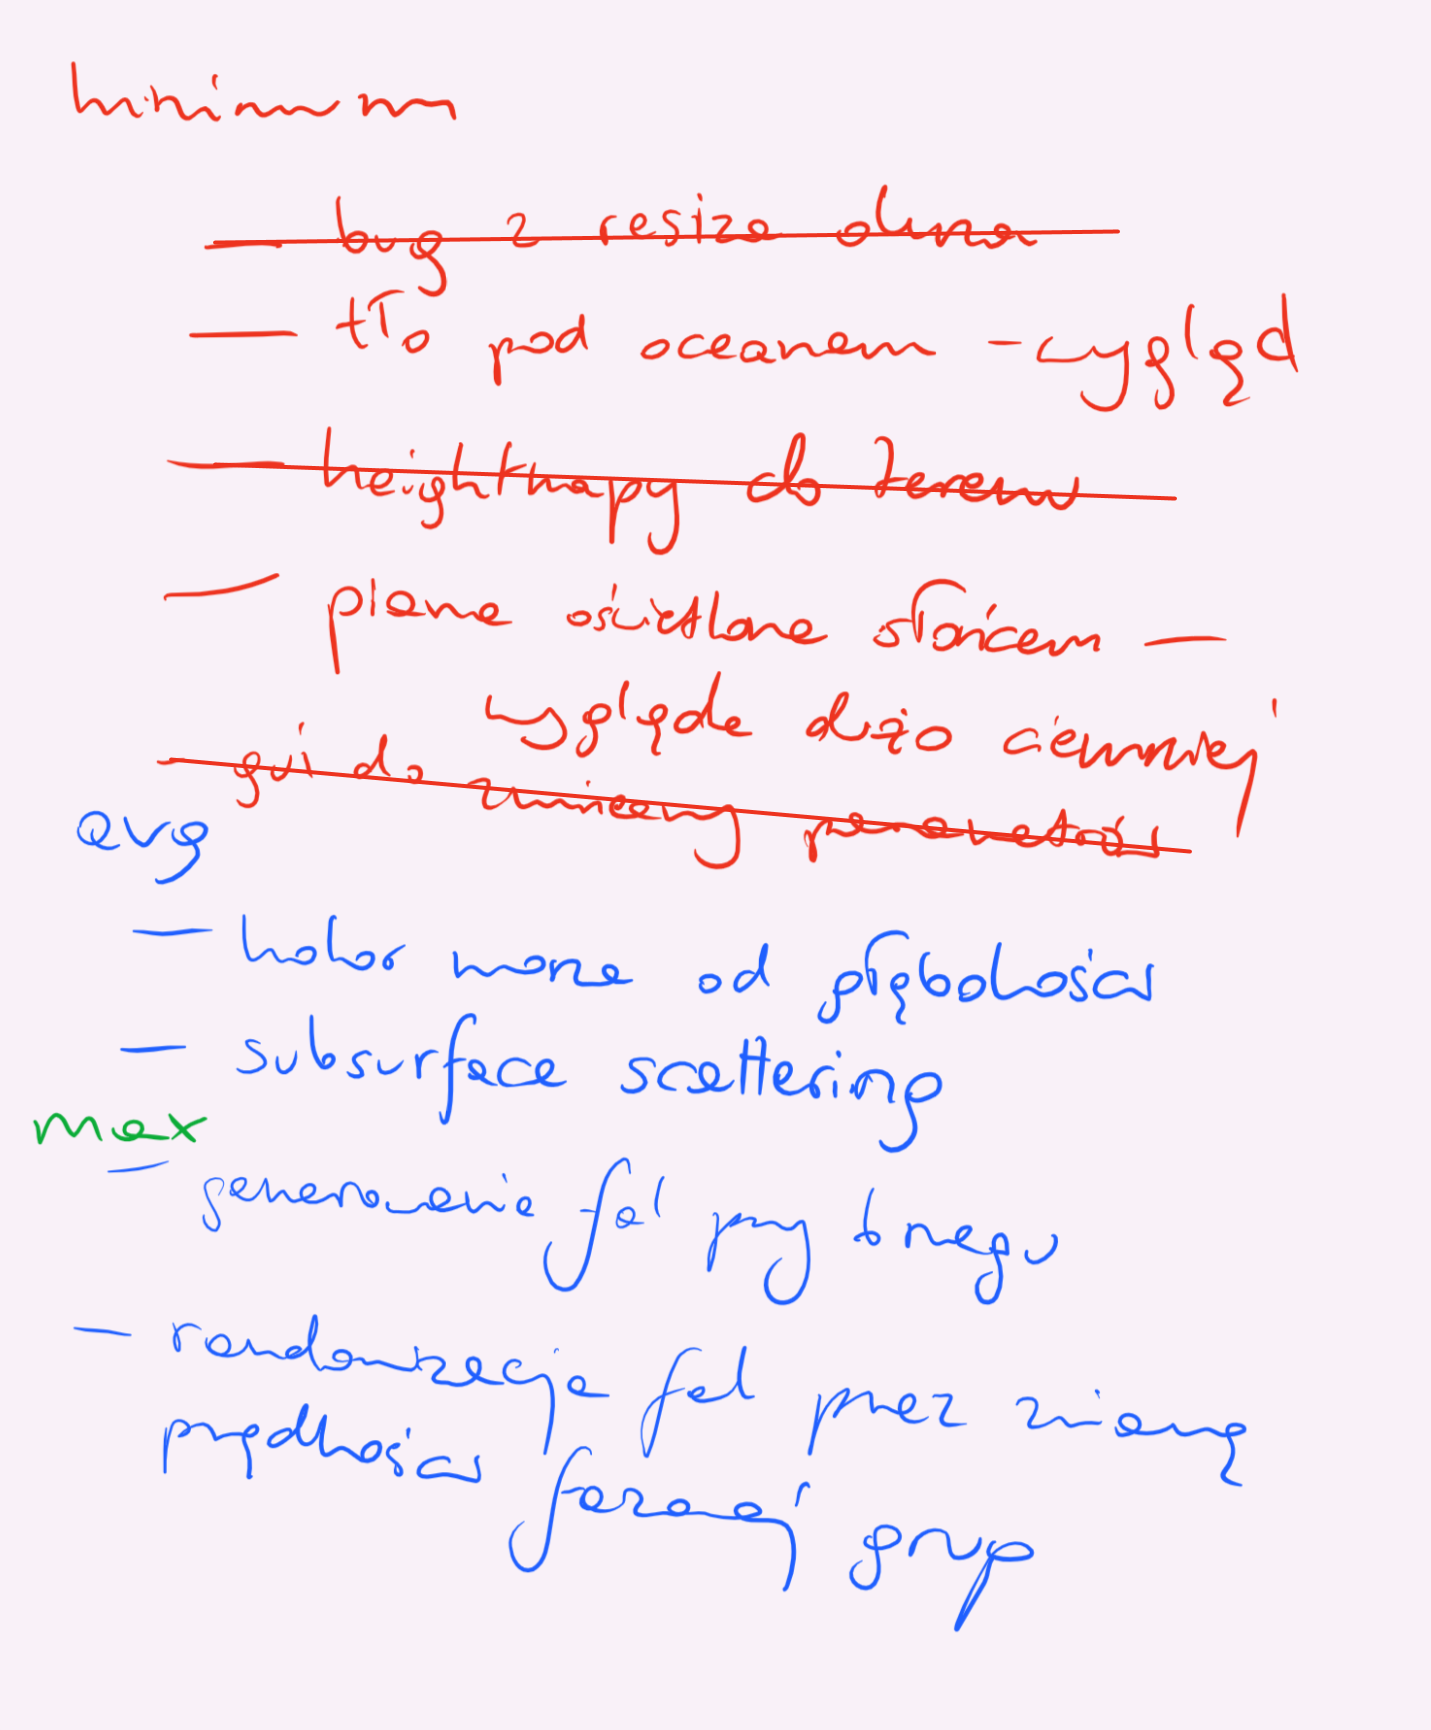 minimum
— bug z resize okna
— tło pod oceanem - wygląd
— heightmapy do terenu
— plane oświetlone słońcem —
wygląda dużo ciemniej
- gui do zmieany parametrów
avg
— kolor morze od głębokości
— subsurface scattering
max
— generowanie fal przy brzegu
— randomizacja fal przez zmianę
prędkości fazowej grup